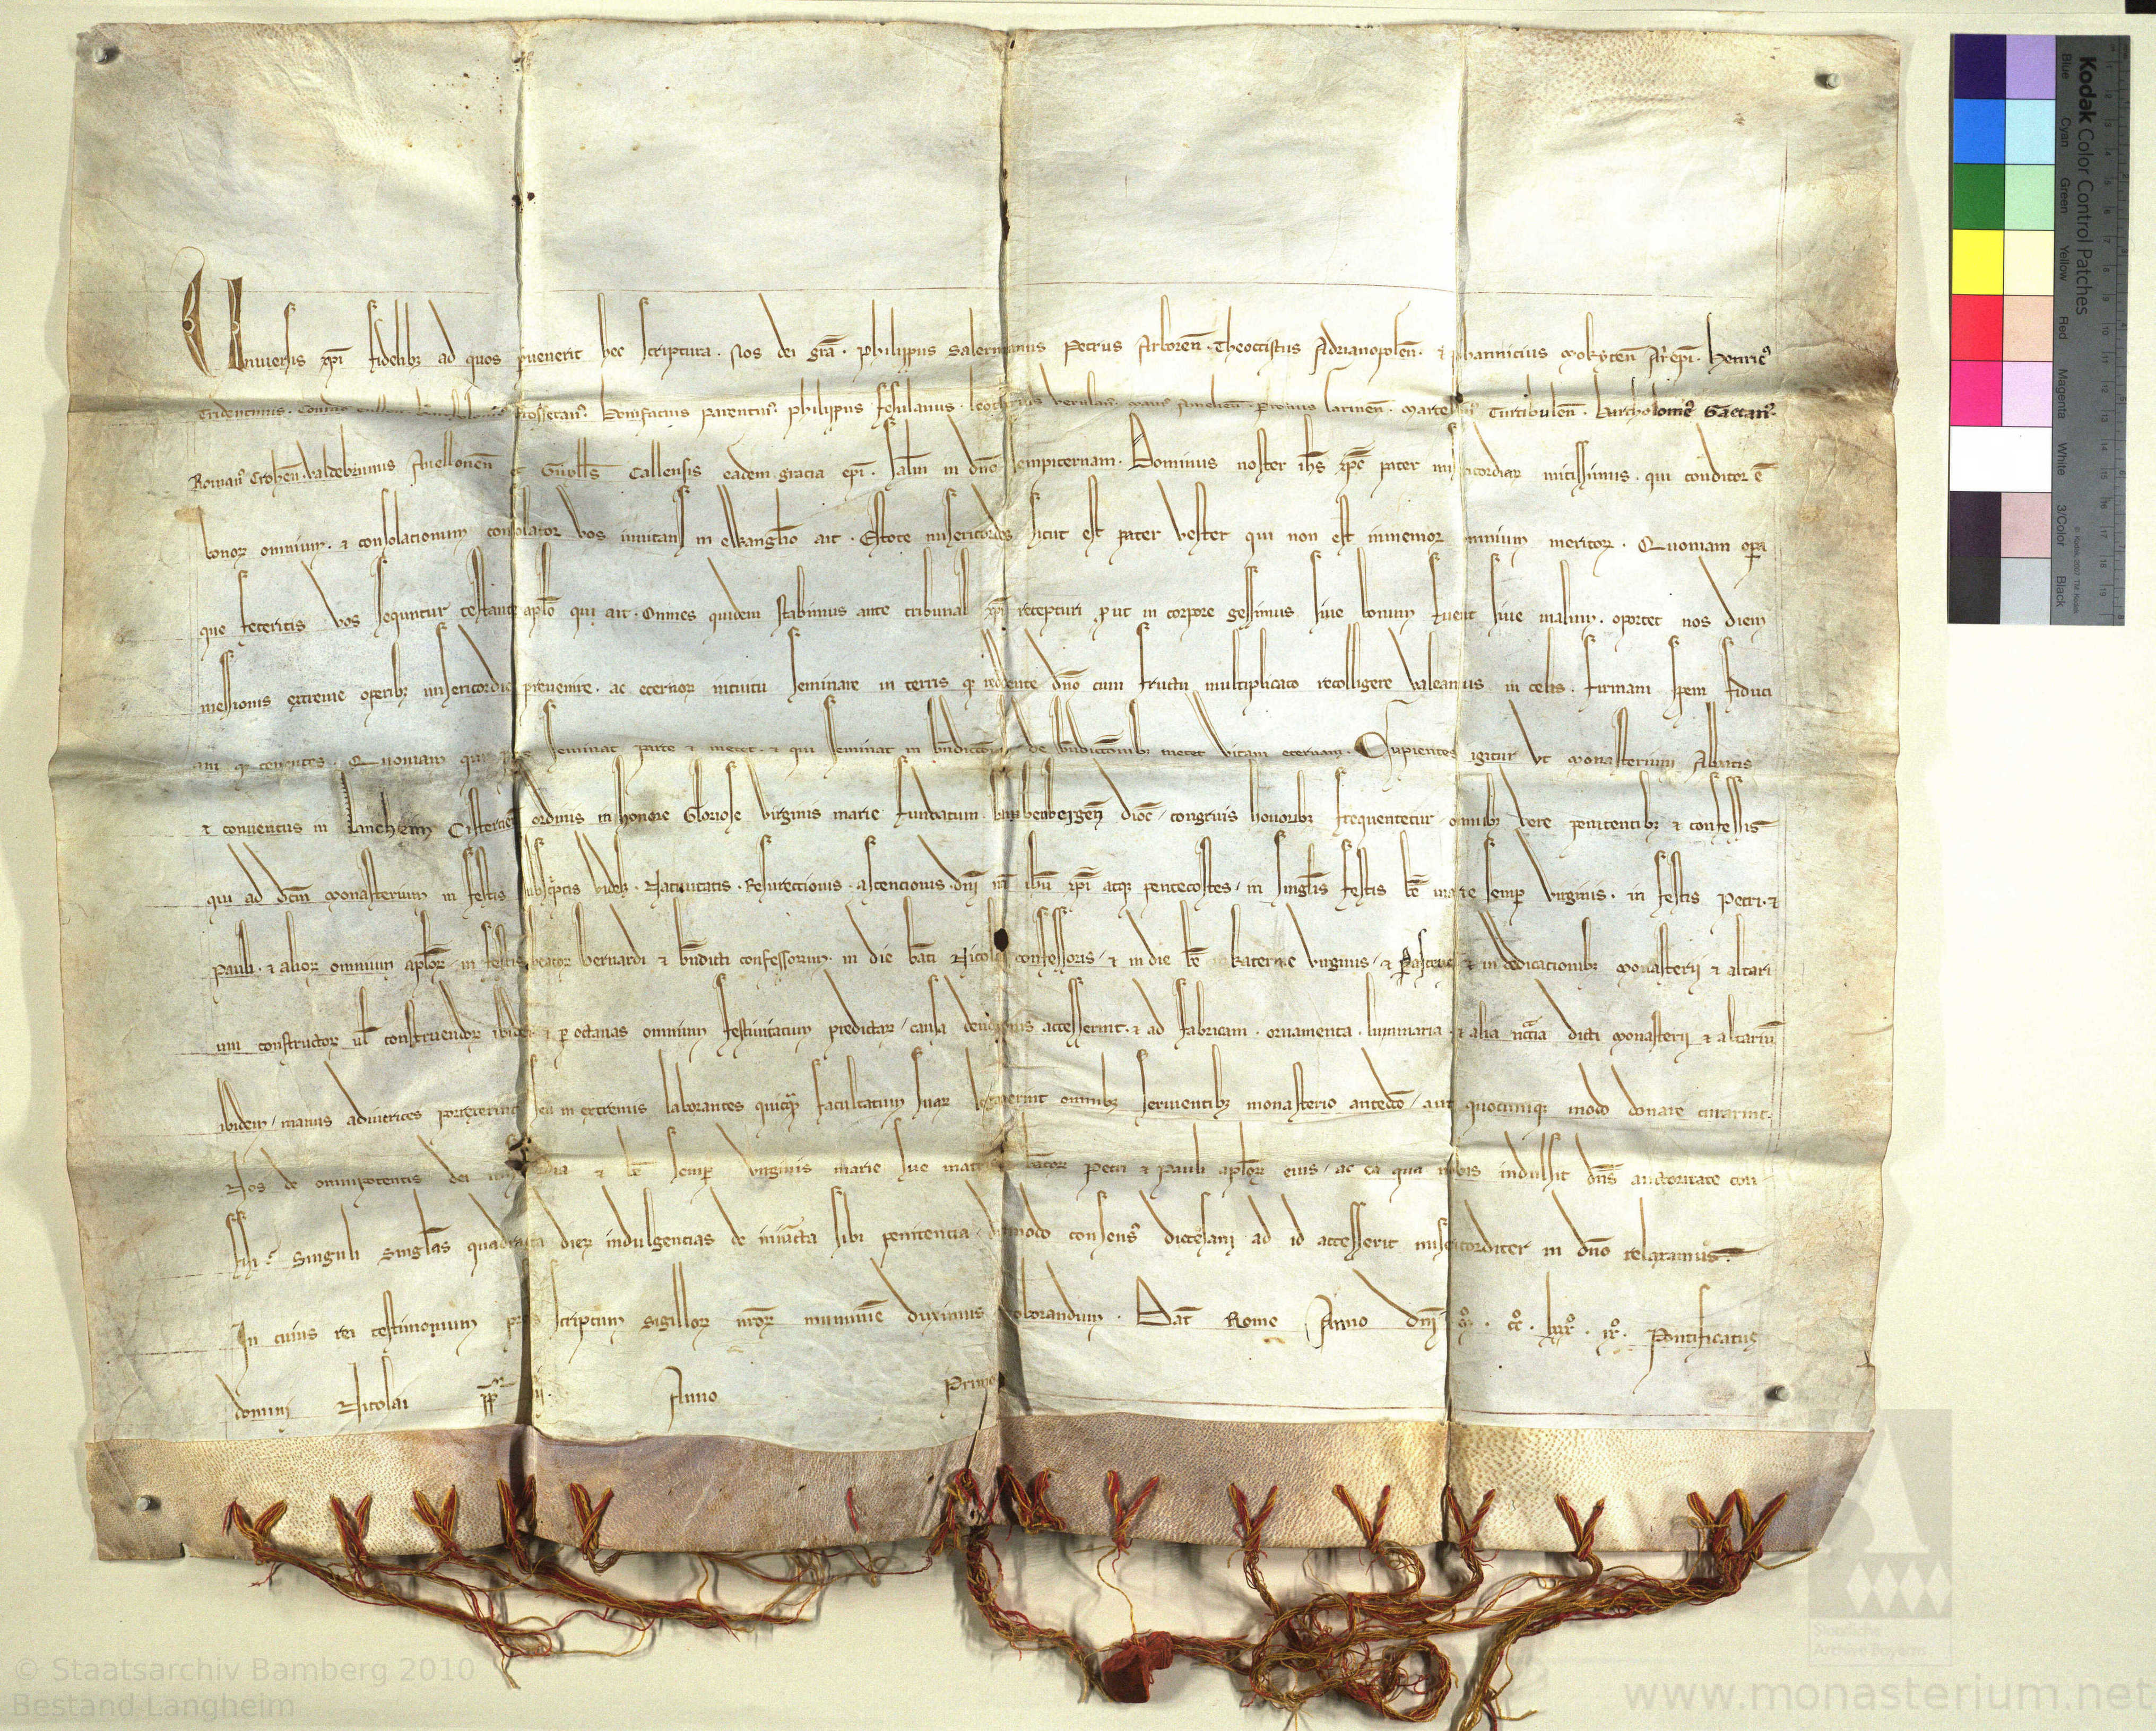 Universis xpi fidelibz ad quos pervenerit hec scriptura. Nos dei gra. philippus Salernitanus Petrus Arboren. Theoctistus Adrianopolen. et Iohannicius Mokyten Arepi. henric9
Tridentinus. Bonifacius parentin9. philippus fesulanus. Verulan9. Petronus Larinen. Marcellin9 Turtibulen. Bartholome9 Gaetan9.
Roman9 Crohen. Valdebrunus Avellonen et Guyllus Callensis eadem gracia epi. salm in dno sempiternam. Dominus noster ihs xpc pater misericordiar mitissimus. qui conditor e
bonor omnium. et consolacionum consolator vos invitans in ewanglio ait. Estote misericordes sicut est pater vester qui non est inmemor omnium meritor. Quoniam opera
que feceritis vos sequntur testante aplo qui ait. Omnes quidem stabimus ante tribunal xpi recepturi put in corpore gessimus sive bonum fuerit sive malum. oportet nos diem
messionis extreme operibz misericordie prevenire. ac eternor intuitu seminare in terris q reddente dno cum fructu multiplicato recolligere valeamus in celis. firmam spem fiduci
am q tenentes. Quoniam qui parce seminat parce et metet. et qui seminat in bndictionibz de bndictionibz metet vitam eternam. Cupientes igitur ut Monasterium Abbatis
et conventus in lancheim Cistercien ordinis in honore Gloriose virginis marie fundatum babenbergen dioc. congruis honoribz frequentetur omnibz vere penitentibz et confessis
qui ad dcm Monasterium in festis subscptis videlz. Nativitatis. Resurectionis. ascencionis. dni nri ihu xpi atqz pentecostes. in singlis festis be marie semp virginis. in festis Petri. et
pauli. et alior omnium aplor. in festis beator bernardi et bndicti confessorum. in die bati Nicolai confessoris. et in die be katerine virginis. et in dedicacionibz Monasterii et altari
um constructor ul construendor ibidem et p octavas omnium festivitatum predictar. causa devocionis accesserint. et ad fabricam. ornamenta. luminaria. et alia ncccia dicti Monasterij et altarium
ibidem. manus adiutrices porrexerint seu in extremis laborantes quicqm facultatum suar legaverint omnibz servientibz monasterio antedco. aut quocumqz modo donare curarint.
Nos de omnipotentis dei misericordia et be semp virginis marie sue matris et bator petri et pauli aplor eius. ac ea qua nobis indulsit dns auctoritate con
fisi. singuli singlas quadraginta dier indulgencias de iniucta sibi penitencia dumodo consens9 diocesani ad id accesserit misericorditer in dno relaxamus.
In cuius rei testimonium presens scriptum sigillor nror munimine duximus roborandum. Dat Rome Anno dni Mo. cco. lxxxo. ixo. Pontificatus
domini Nicolai pp iiii. Anno Primo
Kodak Color Control Patches
Blue Cyan Green Yellow Red Magenta White 3/Color Black
© Staatsarchiv Bamberg 2010
Bestand Langheim
Staatliche
Archive Bayerns
www.monasterium.net